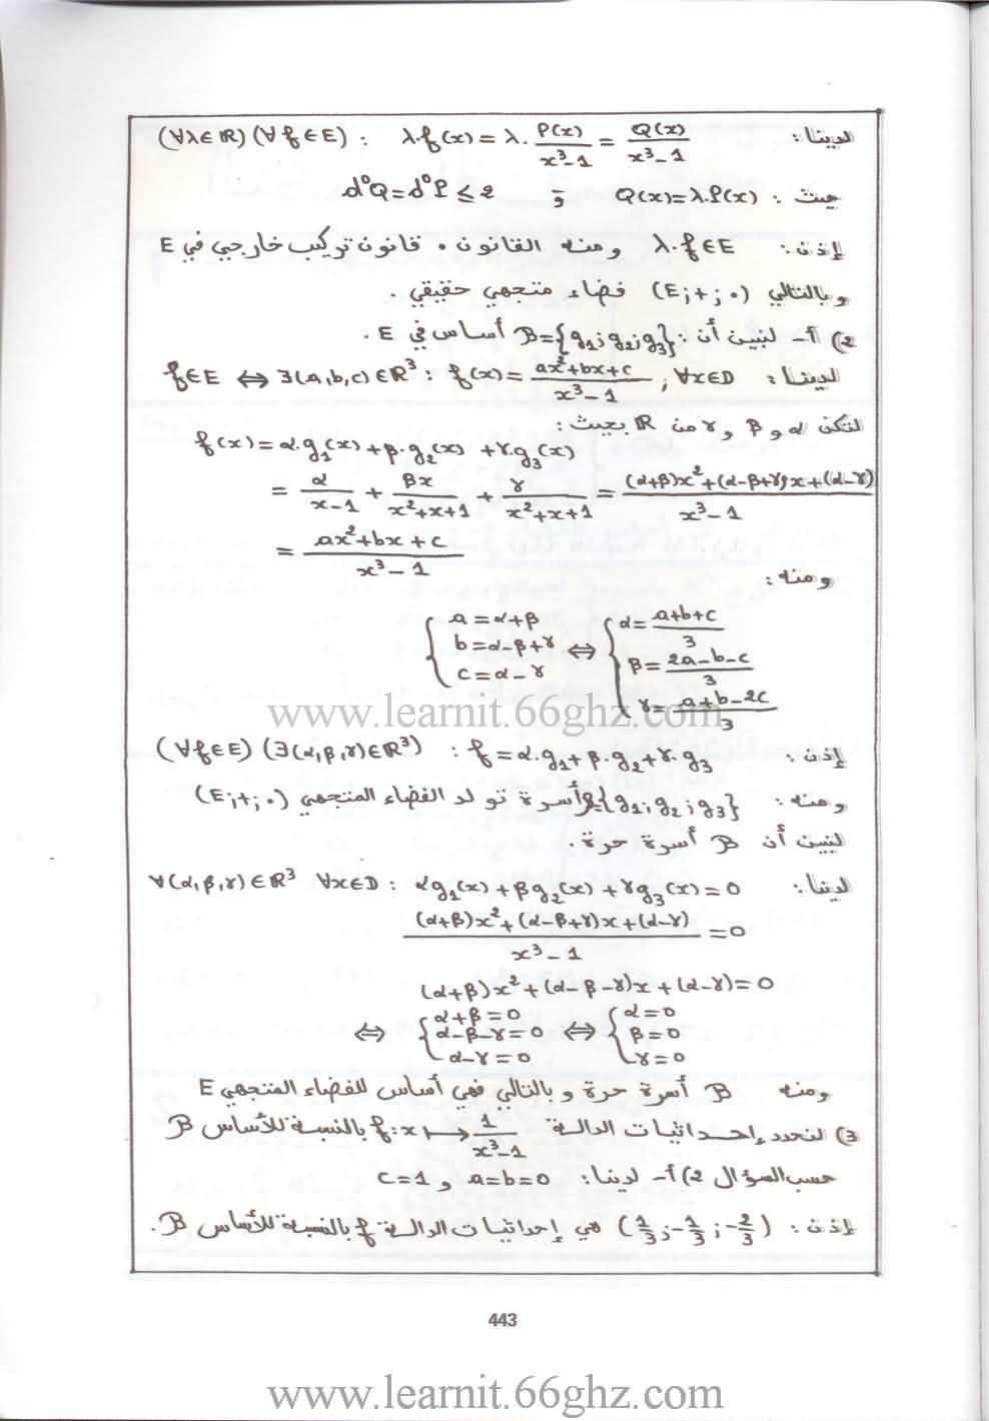 لدينا: (∀λ∈ℝ)(∀f∈E) : λ.f(x)=λ.P(x)/(x³-1) = Q(x)/(x³-1)
حيث : Q(x)=λ.P(x) و d°Q=d°P ≤ 2
إذن: λ.f∈E ومنه القانون . قانون تركيب خارجي في E
وبالتالي (E;+;.) فضاء متجهي حقيقي .
2) أ- لنبين أن : B={g₁;g₂;g₃} أساس في E .
لدينا : f∈E ⇔ ∃(a,b,c)∈ℝ³ : f(x)= (ax²+bx+c)/(x³-1) ; ∀x∈D
لتكن α و β و γ من ℝ بحيث :
f(x)=α.g₁(x)+β.g₂(x)+γ.g₃(x)
= α/(x-1) + βx/(x²+x+1) + γ/(x²+x+1) = ((α+β)x²+(α-β+γ)x+(α-γ))/(x³-1)
= (ax²+bx+c)/(x³-1)
ومنه :
{ a=α+β ; b=α-β+γ ; c=α-γ ⇔ { α=(a+b+c)/3 ; β=(2a-b-c)/3 ; γ=(a+b-2c)/3
www.learnit.66ghz.com
إذن : (∀f∈E)(∃(α,β,γ)∈ℝ³) : f=α.g₁+β.g₂+γ.g₃
ومنه : {g₁;g₂;g₃} أسرة تولد الفضاء المتجهي (E;+;.)
لنبين أن B أسرة حرة .
لدينا : ∀(α,β,γ)∈ℝ³ ∀x∈D : αg₁(x)+βg₂(x)+γg₃(x)=0
((α+β)x²+(α-β+γ)x+(α-γ))/(x³-1) =0
(α+β)x²+(α-β-γ)x+(α-γ)=0
⇔ { α+β=0 ; α-β-γ=0 ; α-γ=0 ⇔ { α=0 ; β=0 ; γ=0
ومنه B أسرة حرة وبالتالي فهي أساس للفضاء المتجهي E
3) لنحدد إحداثيات الدالة f:x⟼1/(x³-1) بالنسبة للأساس B
حسب السؤال 2) أ- لدينا : a=b=0 و c=1
إذن : (1/3 ; -1/3 ; -2/3) هي إحداثيات الدالة f بالنسبة للأساس B.
443
www.learnit.66ghz.com